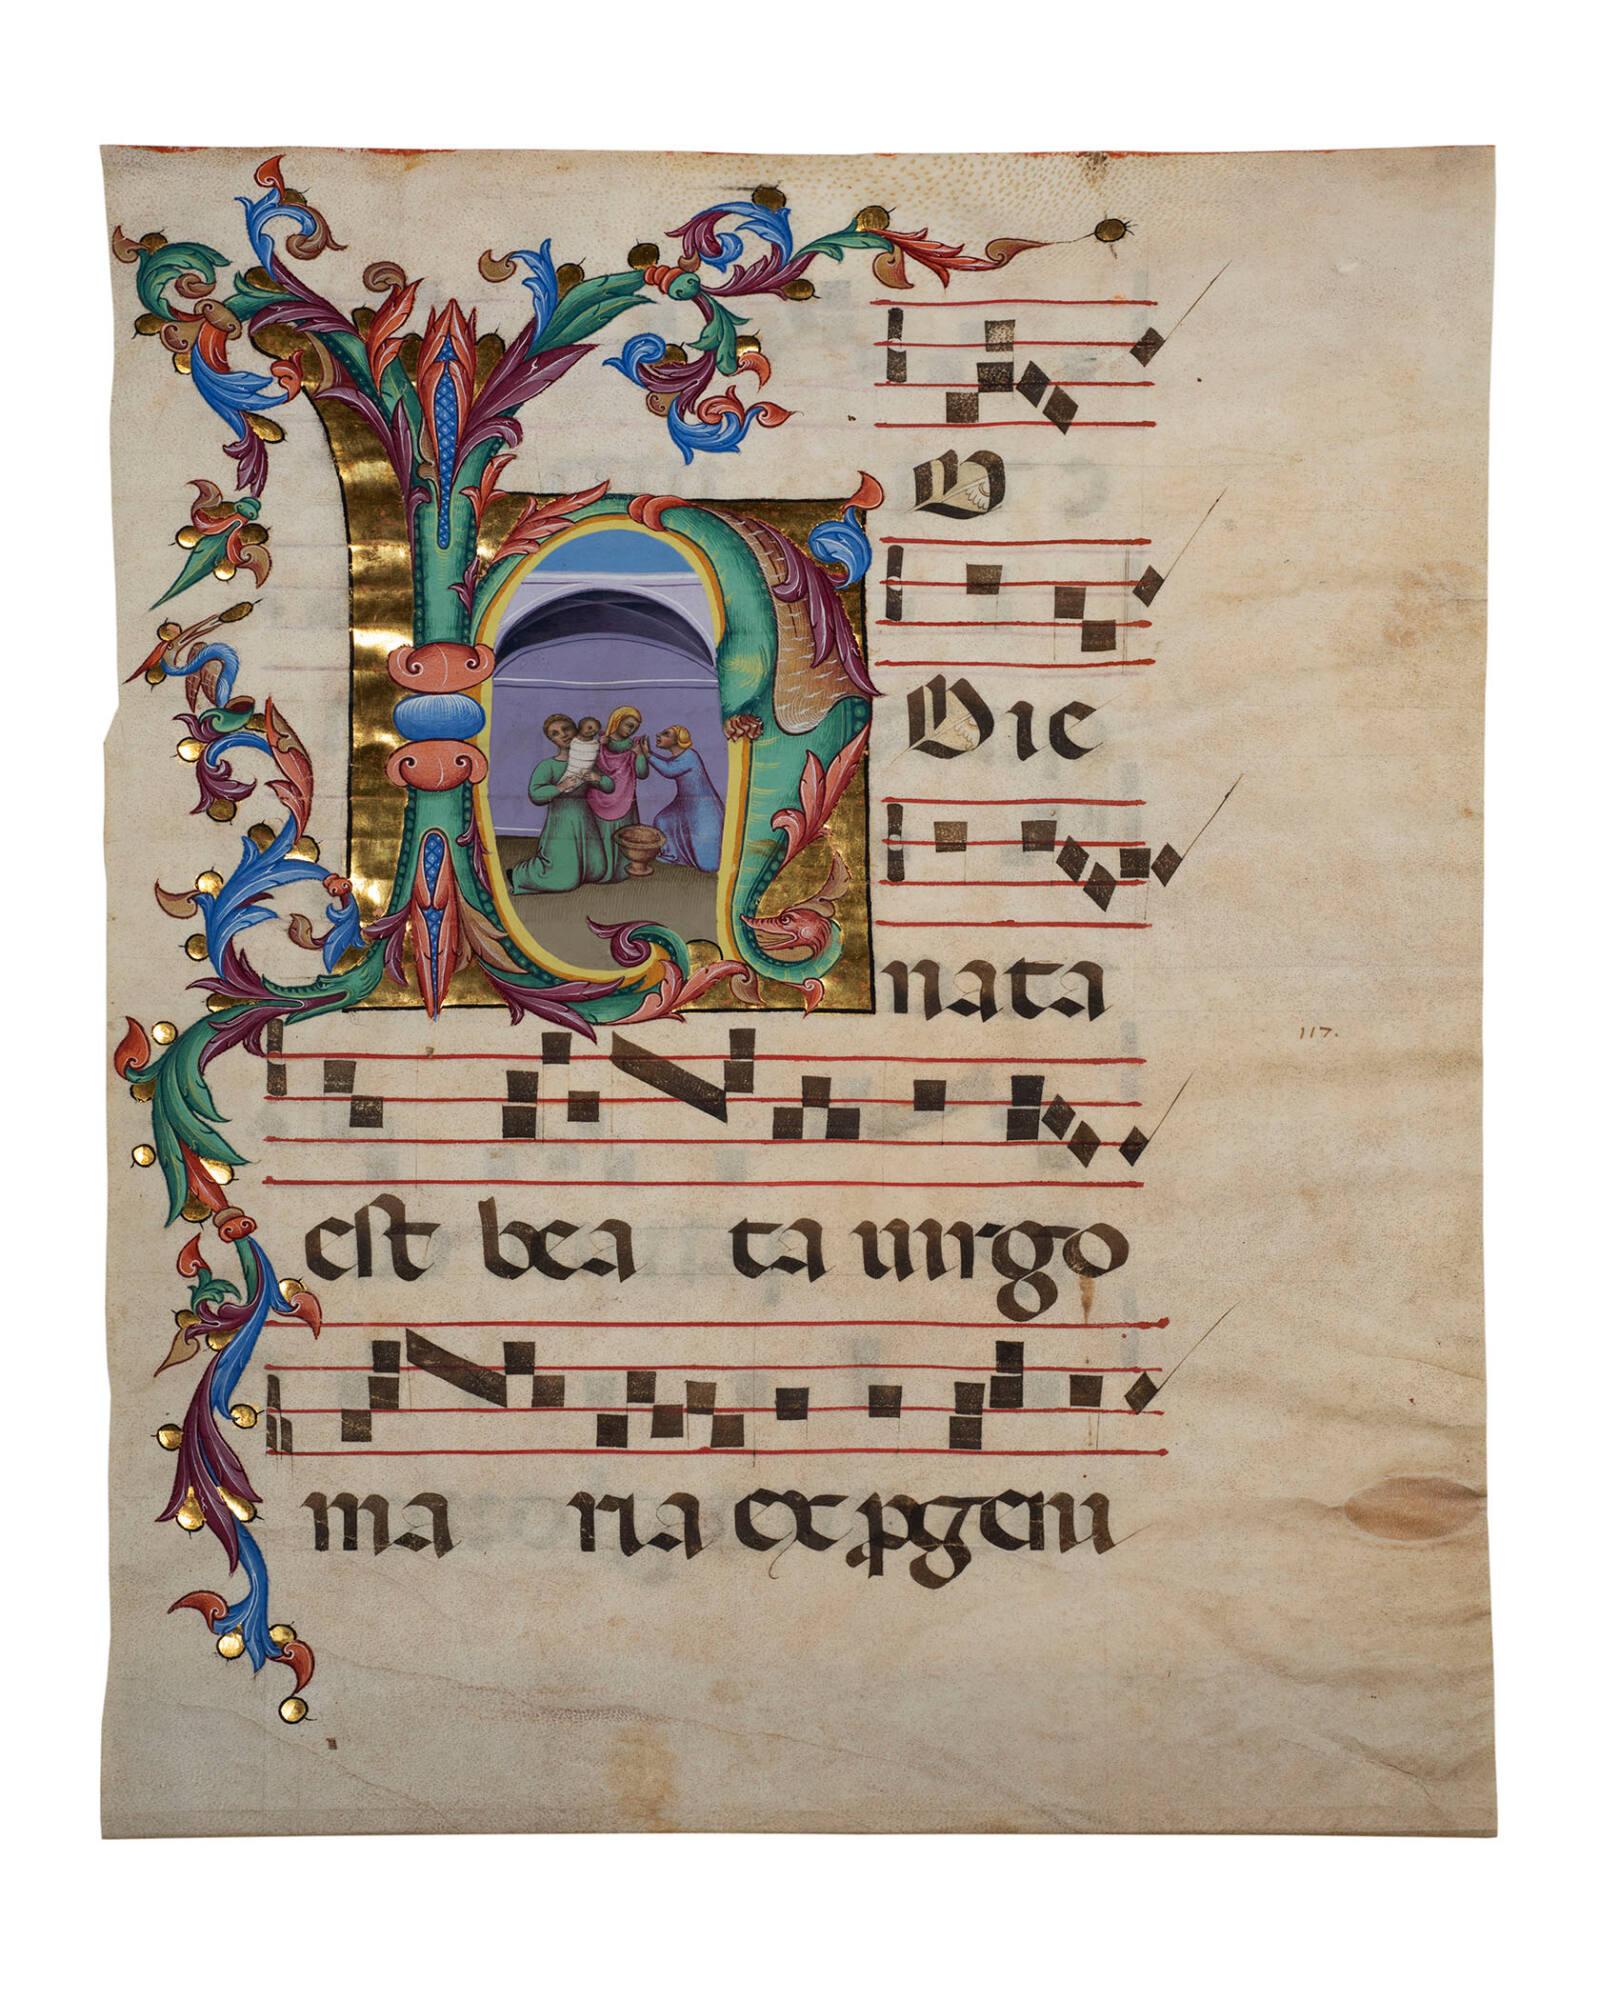 HO
Die
nata
117.
est bea ta uirgo
ma ria ex ꝓgeni